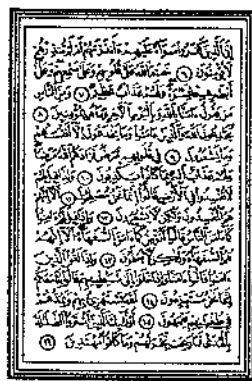 إِنَّ الَّذِينَ كَفَرُوا سَوَاءٌ عَلَيْهِمْ ءَأَنذَرْتَهُمْ أَمْ لَمْ تُنذِرْهُمْ
لَا يُؤْمِنُونَ ٦ خَتَمَ اللَّهُ عَلَىٰ قُلُوبِهِمْ وَعَلَىٰ سَمْعِهِمْ وَعَلَىٰ
أَبْصَٰرِهِمْ غِشَٰوَةٌ وَلَهُمْ عَذَابٌ عَظِيمٌ ٧ وَمِنَ النَّاسِ
مَن يَقُولُ ءَامَنَّا بِاللَّهِ وَبِالْيَوْمِ الْءَاخِرِ وَمَا هُم بِمُؤْمِنِينَ ٨
يُخَٰدِعُونَ اللَّهَ وَالَّذِينَ ءَامَنُوا وَمَا يَخْدَعُونَ إِلَّا أَنفُسَهُمْ
وَمَا يَشْعُرُونَ ٩ فِي قُلُوبِهِم مَّرَضٌ فَزَادَهُمُ اللَّهُ مَرَضًا
وَلَهُمْ عَذَابٌ أَلِيمٌ بِمَا كَانُوا يَكْذِبُونَ ١٠ وَإِذَا قِيلَ لَهُمْ
لَا تُفْسِدُوا فِي الْأَرْضِ قَالُوا إِنَّمَا نَحْنُ مُصْلِحُونَ ١١ أَلَا إِنَّهُمْ
هُمُ الْمُفْسِدُونَ وَلَٰكِن لَّا يَشْعُرُونَ ١٢ وَإِذَا قِيلَ لَهُمْ ءَامِنُوا
كَمَا ءَامَنَ النَّاسُ قَالُوا أَنُؤْمِنُ كَمَا ءَامَنَ السُّفَهَاءُ أَلَا إِنَّهُمْ
هُمُ السُّفَهَاءُ وَلَٰكِن لَّا يَعْلَمُونَ ١٣ وَإِذَا لَقُوا الَّذِينَ
ءَامَنُوا قَالُوا ءَامَنَّا وَإِذَا خَلَوْا إِلَىٰ شَيَٰطِينِهِمْ قَالُوا إِنَّا مَعَكُمْ
إِنَّمَا نَحْنُ مُسْتَهْزِءُونَ ١٤ اللَّهُ يَسْتَهْزِئُ بِهِمْ وَيَمُدُّهُمْ
فِي طُغْيَٰنِهِمْ يَعْمَهُونَ ١٥ أُولَٰئِكَ الَّذِينَ اشْتَرَوُا الضَّلَٰلَةَ
بِالْهُدَىٰ فَمَا رَبِحَت تِّجَٰرَتُهُمْ وَمَا كَانُوا مُهْتَدِينَ ١٦